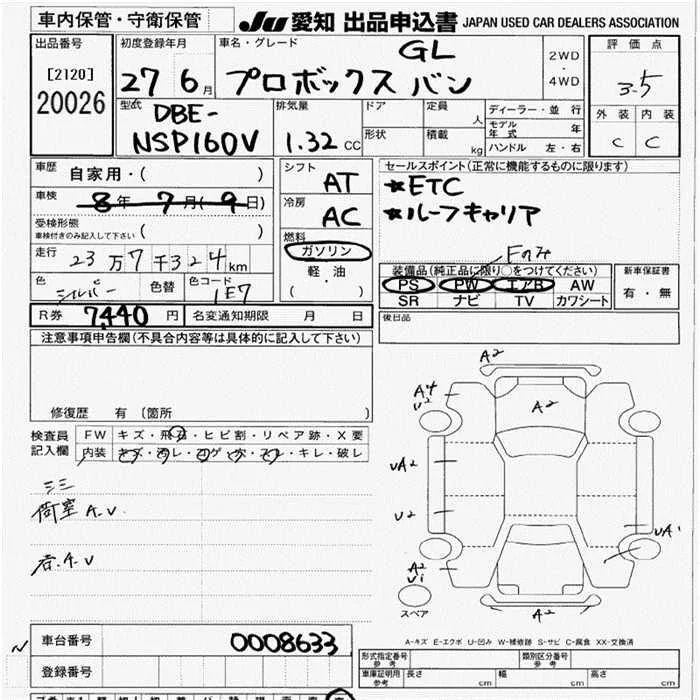 車内保管・守衛保管
JU 愛知 出品申込書 JAPAN USED CAR DEALERS ASSOCIATION
出品番号
[2120]
20026
初度登録年月
27 6月
車名・グレード
GL
プロボックス バン
2WD
・
4WD
評価点
3.5
外装 内装
C C
型式
DBE-
NSP160V
排気量
1.32 CC
ドア
形状
定員 人
積載 kg
ディーラー・並行
モデル年式 年
ハンドル 左・右
車歴 自家用・( )
車検 8年 7月( 9日)
受検形態
車検付きのみ記入して下さい ( )
走行 23万7千324km
色 シルバー 色替 色コード 1E7
シフト AT
冷房 AC
燃料
ガソリン
軽油
( ・ )
セールスポイント(正常に機能するものに限ります)
★ETC
★ルーフキャリア
Fのみ
装備品(純正品に限り○をつけてください)
PS PW エアB AW
SR ナビ TV カワシート
新車保証書
有・無
R券 7,440円 名変通知期限 月 日
後日品
注意事項申告欄(不具合内容等は具体的に記入して下さい)
修復歴 有 〔箇所 〕
検査員記入欄
FW キズ・飛石・ヒビ割・リペア跡・X要
内装 キズ・汚レ・コゲ・穴・スレ・キレ・破レ
ミミ
荷室 A.V
A.V
A2
A4
U2
A2
UA2
U2
UA1
A2
U1
A2
スペア
A-キズ E-エクボ U-凹み W-補修跡 S-サビ C-腐食 XX-交換済
車台番号 0008633
登録番号
形式指定番号 参考
類別区分番号 参考
車庫証明用 参考 長さ cm 幅 cm 高さ cm